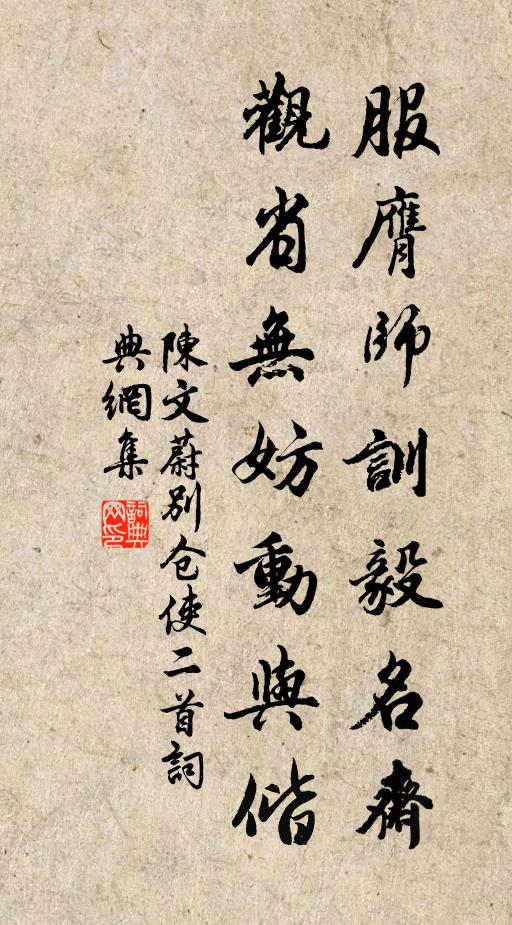 服膺師訓毅名齋
觀省無妨動與偕
陳文蔚別仓使二首詞
典網集
詞典网印